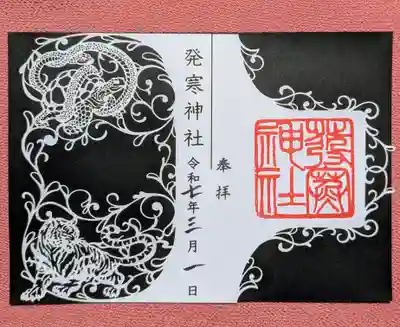 奉拝
発寒神社
発寒神社
令和七年三月一日